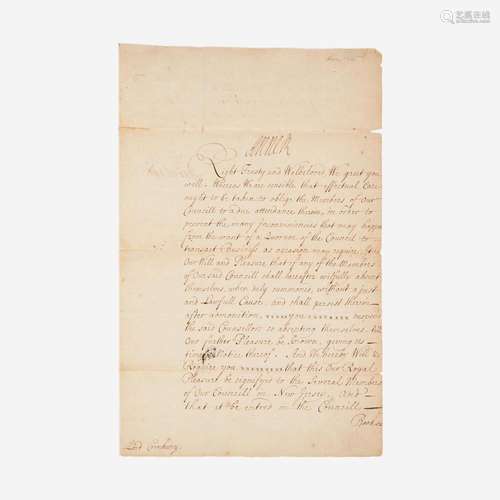 艺典拍卖
Anne R
Right Trusty and Welbeloved, We greet you
well. Whereas We are sensible that effectual Care
ought to be taken to oblige the Members of Our
Councill to a due attendance therein, in order to
prevent the many inconveniencies that may happen
from the want of a Quorum of the Council to
transact Business as occasion may require. It is
Our Will and Pleasure that if any of the Members
of Our said Councill shall hereafter wilfully absent
themselves, when duly summoned, without a just
and Lawfull Cause, and shall persist therein
after admonition, you suspend
the said Councillors so absenting themselves, till
Our further Pleasure be known, giving us
timely Notice thereof. And We hereby Will &
Require you that this Our Royal
Pleasure be signifyed to the Several Members
of Our Councill in New Jersey, And
that it be entred in the Councill
Books
Lord Cornbury.